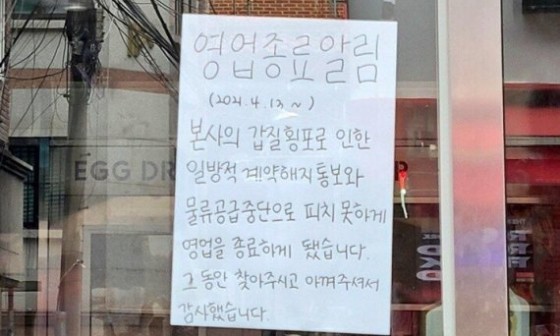 영업종료알림
(2021.4.13~)
본사의 갑질횡포로 인한
일방적 계약해지통보와
물류공급중단으로 피치 못하게
영업을 종료하게 됐습니다.
그동안 찾아주시고 아껴주셔서
감사했습니다.
EGG DR
P